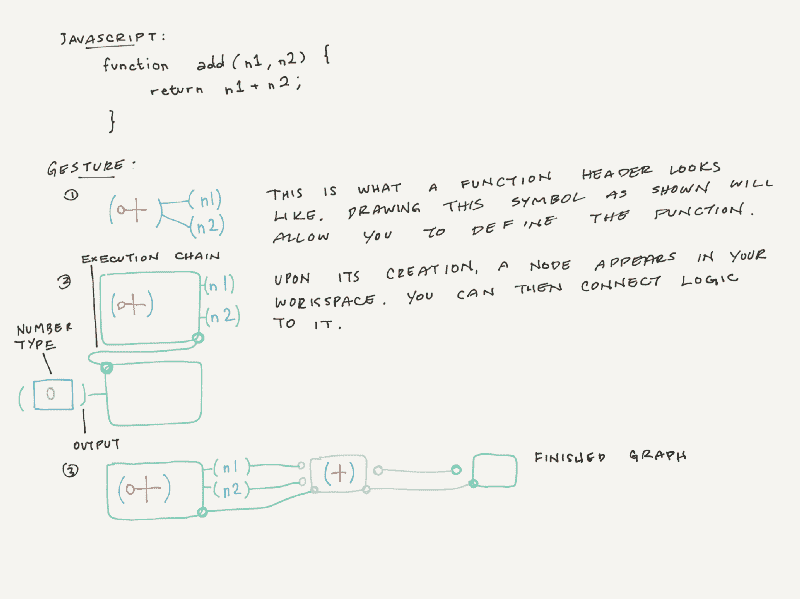 JAVASCRIPT:
function add (n1, n2) {
return n1 + n2;
}
GESTURE:
①
(o+) (n1)
(n2)
THIS IS WHAT A FUNCTION HEADER LOOKS
LIKE. DRAWING THIS SYMBOL AS SHOWN WILL
ALLOW YOU TO DEFINE THE FUNCTION.
EXECUTION CHAIN
②
(o+) (n1)
(n2)
UPON ITS CREATION, A NODE APPEARS IN YOUR
WORKSPACE. YOU CAN THEN CONNECT LOGIC
TO IT.
NUMBER
TYPE
( 0 )
OUTPUT
③
(o+) (n1) (+)
(n2)
FINISHED GRAPH